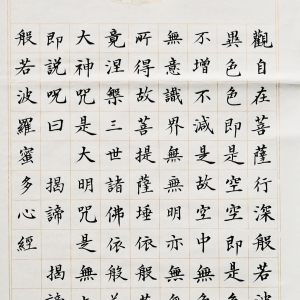 觀自在菩薩行深般若波
異色色即是空空即是色
不增不減是故空中無色
無意識界無無明亦無
所得故菩提薩埵依般若
竟涅槃三世諸佛依般若
大神咒是大明咒是無上
即説呪曰 揭諦 揭諦
般若波羅蜜多心經